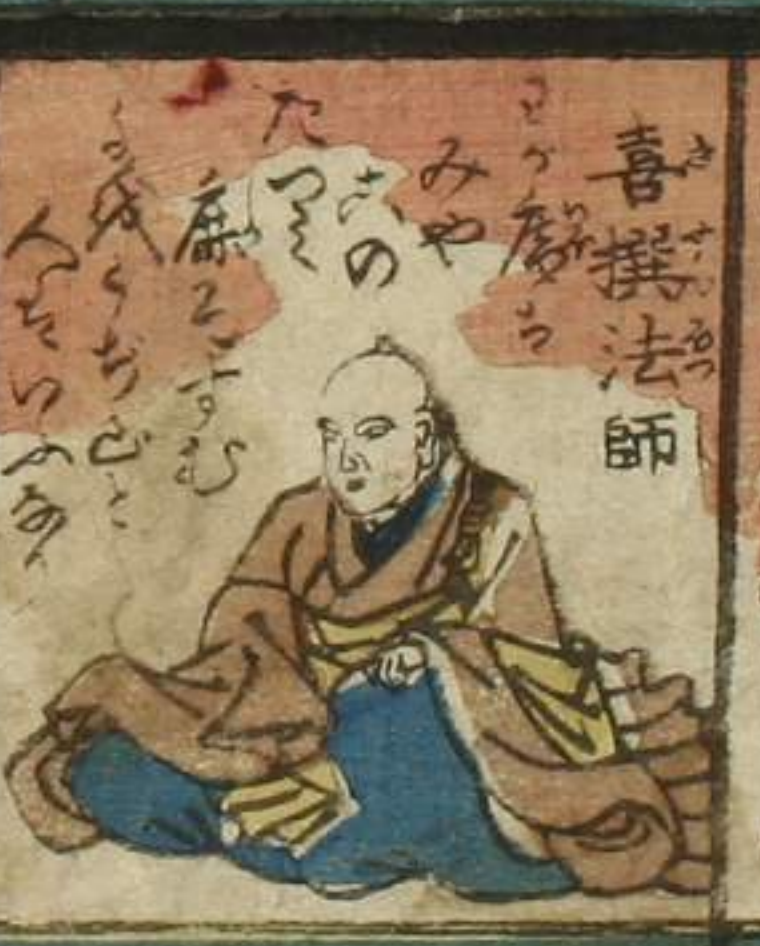 喜撰法師
きせんほつ
わが庵は
みや
この
たつミ
鹿ぞすむ
世をうぢ山と
人はいふなり